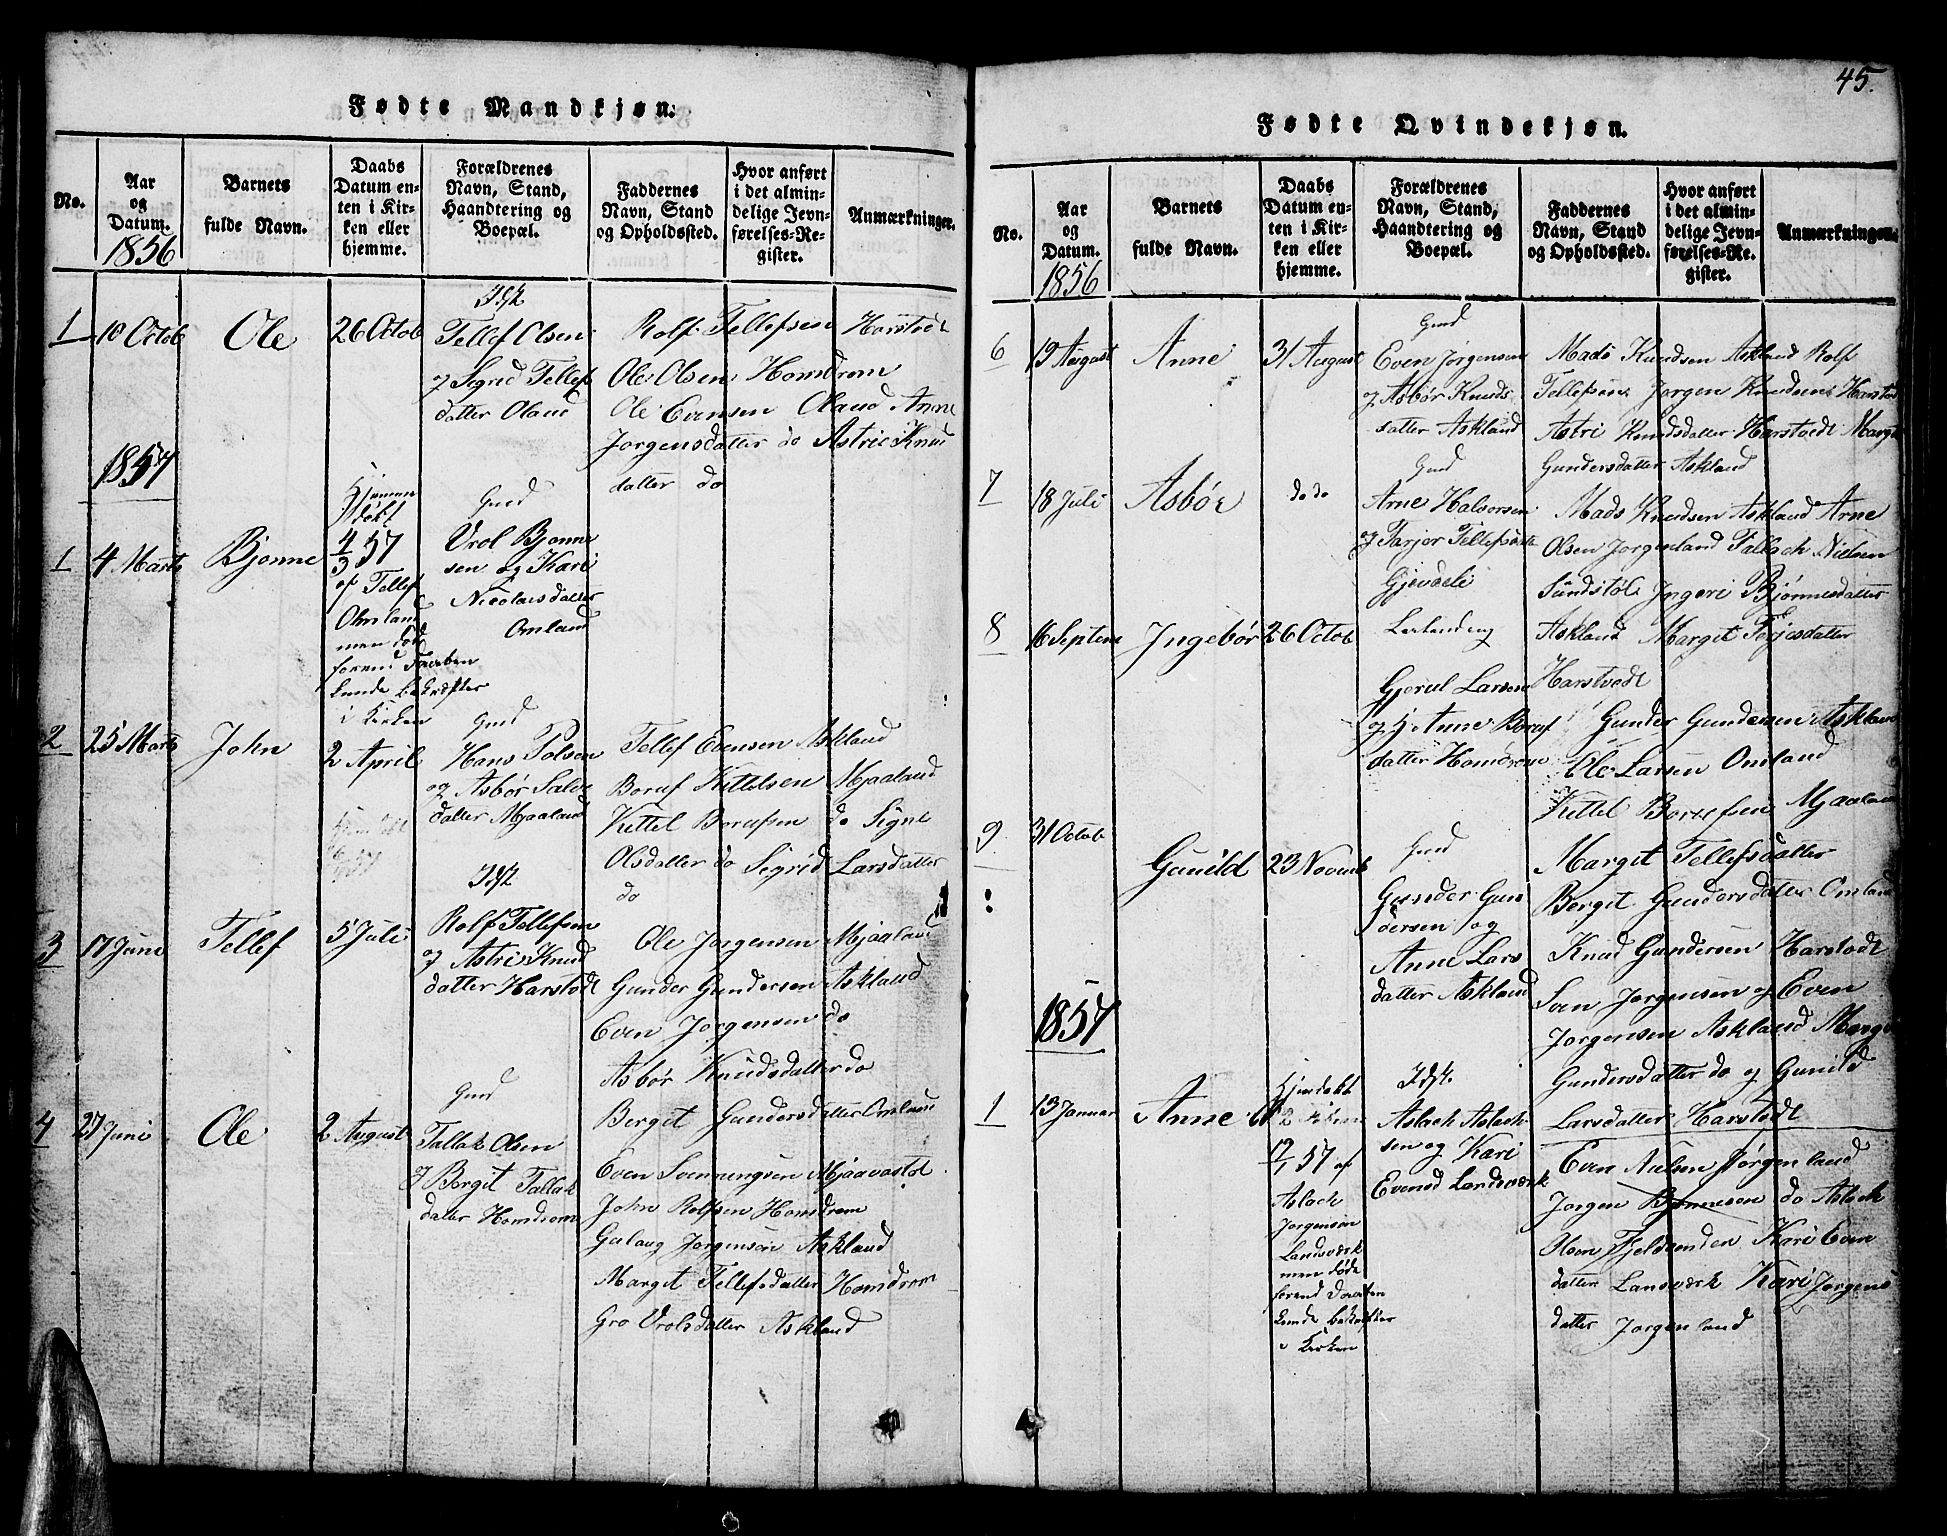 45.
Fødte Mandkjøn.
No.
Aar og Datum.
1856
Barnets fulde Navn.
Daabs Datum enten i Kirken eller hjemme.
Forældrenes Navn, Stand, Haandtering og Boepæl.
Faddernes Navn, Stand og Opholdssted.
Hvor anført i det almindelige Jevnførelses-Register.
Anmærkninger.
1
10 Octob
Ole
26 Octob
Tellef Olsen
og Sigrid Tellefs
datter Oland
Rolf Tellefsen Harstvedt
Ole Olsen Homdrom
Ole Evensen Oland Anne
Jorgensdatter do Astrie Knud
datter do
1857
1
4 Marts
Bjonne
Hjemme
døbt
4/3 57
af Tellef
Omland
men døde
forend Daaben
kunde bekræftes
i Kirken
Gmd
Vrol Bjonne
sen og Kari
Nicolaisdatter
Omland
2
25 Marts
John
2 April
Gmd
Hans Tolsen
og Asbør Salve
datter Mjaaland
Tellef Evensen Askland
Boruf Kittelsen Mjaaland
Kittel Borufsen do Signe
Olsdatter do Sigrid Larsdatter
do
3
17 Juni
Tellef
5 Juli
Rolf Tellefsen
og Astri Knud
datter Harstvedt
Ole Jorgensen Mjaaland
Gunder Gundersen Askland
Even Jorgensen do
Asbør Knudsdatter do
Bergit Gundersdatter Omland
4
27 Juni
Ole
2 August
Gmd
Tallak Olsen
og Bergit Tallak
datter Homdrom
Even Svennungsen Mjaavastøl
John Rolfsen Homdrom
Gulaug Jorgensen Askland
Margit Tellefsdatter Homdrom
Gro Vrolsdatter Askland
Fødte Qvindekjøn.
No.
Aar og Datum.
1856
Barnets fulde Navn.
Daabs Datum enten i Kirken eller hjemme.
Forældrenes Navn, Stand, Haandtering og Boepæl.
Faddernes Navn, Stand og Opholdssted.
Hvor anført i det almindelige Jevnførelses-Register.
Anmærkninger.
6
19 August
Anne
31 August
Gmd
Even Jorgensen
og Asbør Knuds
datter Askland
Mads Knudsen Askland Rolf
Tellefsen Jorgen Knudsen Harstvedt
Astri Knudsdatter Harstvedt Margit
Gundersdatter Askland
7
18 Juli
Asbør
do do
Gmd
Arne Halvorsen
og Tarjer Tellefsdatter
Gjevdeli
Mads Knudsen Askland Arne
Olsen Jorgenland Tallach Nielsen
Sundstøl Ingeri Bjørnesdatter
Askland Margit Terjesdatter
Harstvedt
8
16 Septem
Ingebør
26 Octob
Gjerul Larsen
og Anne Boruf
datter Homdrom
Gunder Gundersen Askland
Ole Larsen Omland
Kittel Borufsen Mjaaland
Margit Tellefsdatter
Bergit Gundersdatter Omland
9
31 Octob
Gunild
23 Novemb
Gmd
Gunder Gun
dersen og
Anne Lars
datter Askland
Knud Gundersen Harstvedt
Sven Jorgensen og Even
Jorgensen Askland Margit
Gundersdatter do og Gunild
Larsdatter Harstvedt
1857
1
13 Januar
Anne
Hjemdøbt
17/1 57 af
Aslack
Jorgensen
Landsværk
men døde
forend Daaben
kunde bekræftes
i Kirken
Aslach Aslach
sen og Kari
Evensd Landsværk
Even Nielsen Jørgenland
Jorgen Bjonnesen do Aslach
Olsen Fjeldsenden Kari Even
datter Lansværk Kari Jorgens
datter Jorgenland